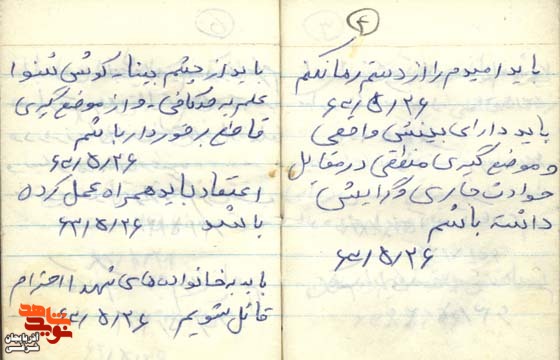 ۴
باید امیدم را از دستم رها نکنم
۶۳/۵/۲۶
باید دارای بینشی واقعی
و موضع گیری منطقی در مقابل
حوادث جاری و گرایشی
داشته باشم
۶۳/۵/۲۶
باید از چشم بینا - گوش شنوا
علم به حد کافی - و از موضع گیری
قاطع برخوردار باشم
۶۳/۵/۲۶
اعتقاد باید همراه عمل کرده
باشد ۶۳/۵/۲۶
باید به خانواده های شهدا احترام
قائل شویم ۶۳/۵/۲۶
نوید شاهد
آذربایجان
شرقی